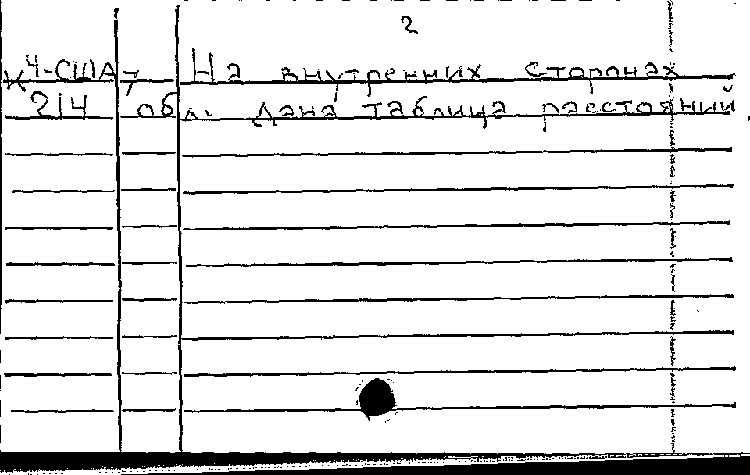 2
К 4-США 7 На внутренних сторонах
2/4 обл. Дана таблица расстояний.